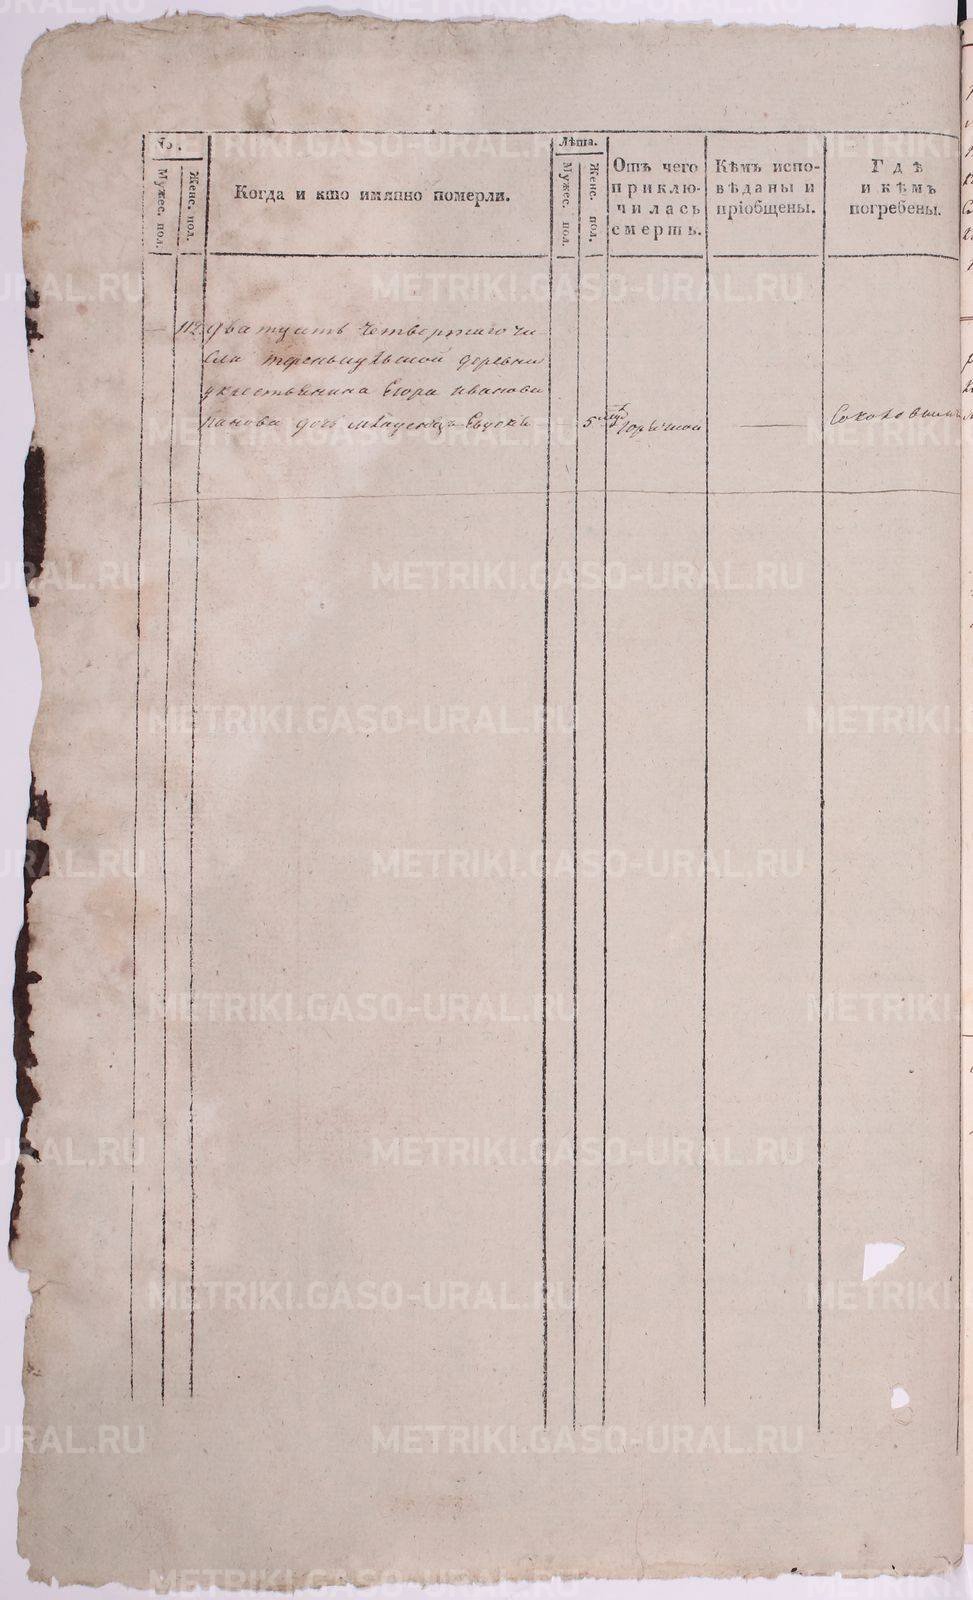 №.
Мужес. пол.
Женс. пол.
Когда и кто имянно померли.
Лѣта.
Мужес. пол.
Женс. пол.
Отъ чего
приклю-
чилась
смерть.
Кѣмъ испо-
вѣданы и
пріобщены.
Гдѣ
и кѣмъ
погребены.
112 дватцать четвертаго чи
сла деревни
у крестьянина Егора Иванова
Панова дочь младенец
5
горячкой
METRIKI.GASO-URAL.RU